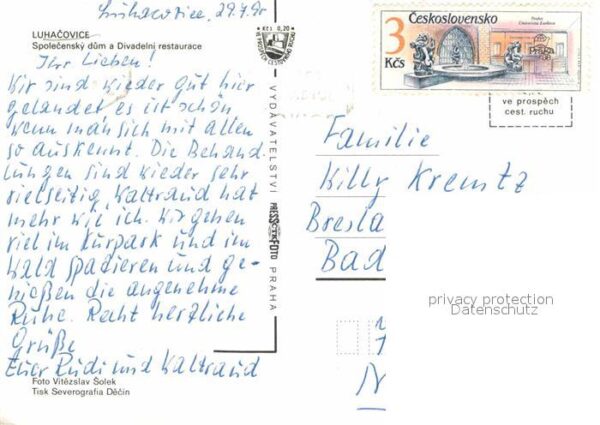 Luhačovice, 29.7.90
LUHAČOVICE
Společenský dům a Divadelní restaurace
Ihr Lieben!
Wir sind wieder gut hier
gelandet es ist schön
wenn man sich mit allen
so auskennt. Die Behand
lungen sind wieder sehr
vielseitig, Waltraud hat
mehr wie ich. Wir gehen
viel im Kurpark und im
Wald spazieren und ge-
nießen die angenehme
Ruhe. Recht herzliche
Grüße
Euer Rudi und Waltraud
Foto Vítězslav Šolek
Tisk Severografia Děčín
Kčs 0,20
VE PROSPĚCH CESTOVNÍHO RUCHU
VYDAVATELSTVÍ PRESSFOTO PRAHA
Československo
3 Kčs
ve prospěch
cest. ruchu
Familie
Willy Kremtz
Bresla
Bad
privacy protection
Datenschutz